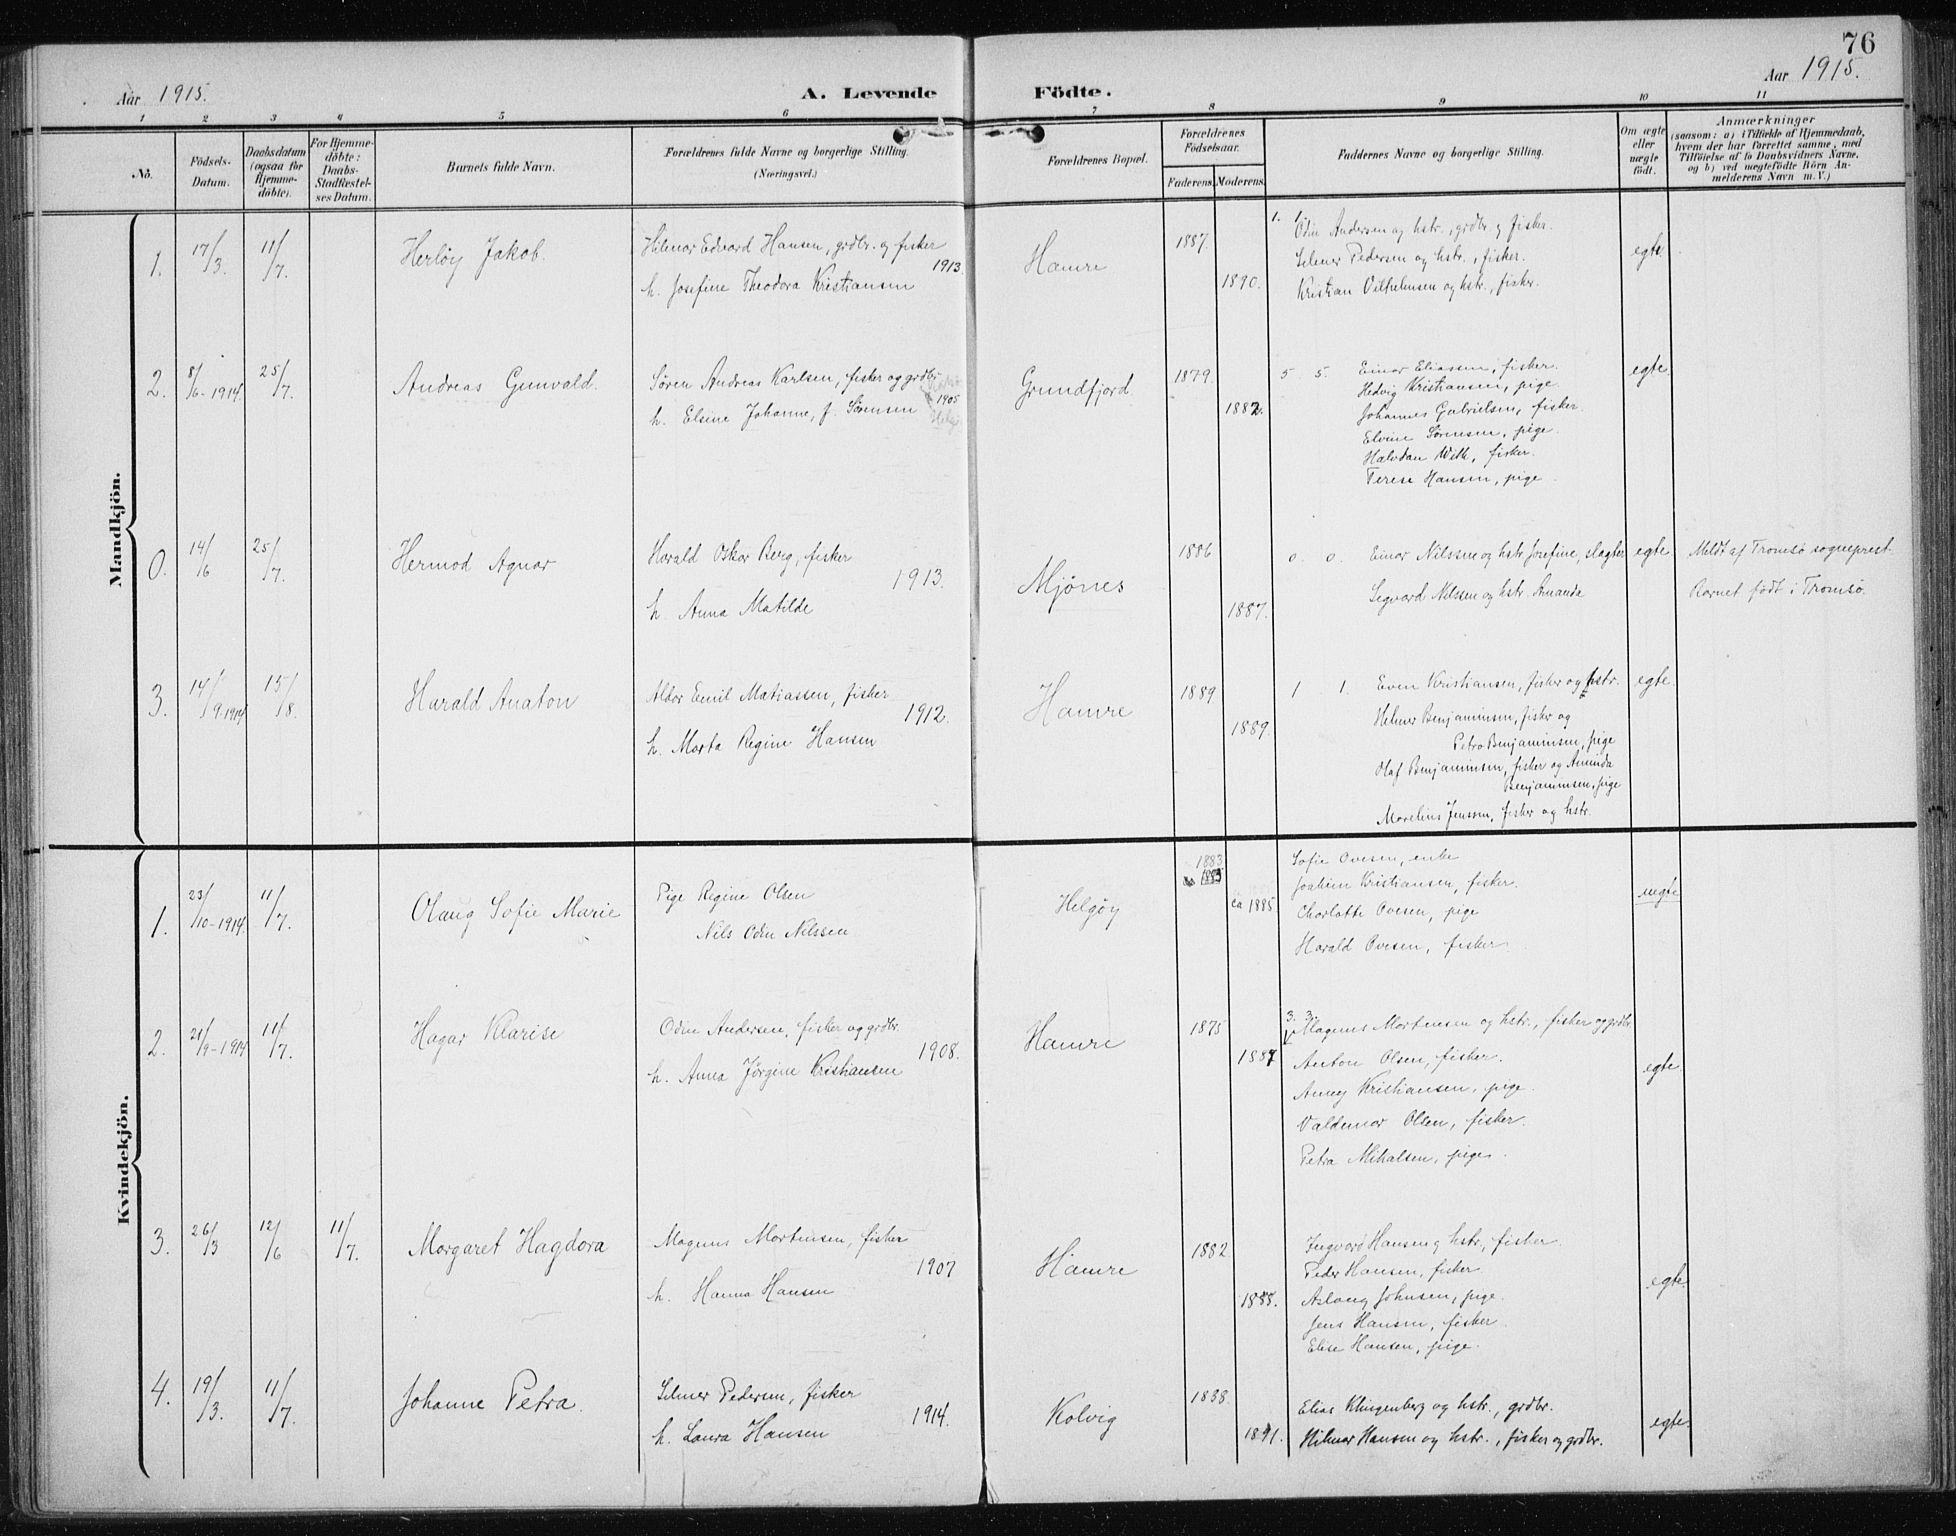 76
Aar 1915.
A. Levende Födte.
Aar 1915.
1 2 3 4 5 6 7 8 9 10 11
No.
Födsels-
Datum.
Daabsdatum
(ogsaa for
Hjemme-
döbte).
For Hjemme-
döbte:
Daabs-
Stadfæstel-
ses Datum.
Barnets fulde Navn.
Forældrenes fulde Navne og borgerlige Stilling.
(Næringsvei.)
Forældrenes Bopæl.
Forældrenes
Födselsaar.
Faderens. Moderens.
Faddernes Navne og borgerlige Stilling.
Om ægte
eller
uægte
födt.
Anmærkninger
(saasom: a) i Tilfælde af Hjemmedaab,
hvem der har forrettet samme, med
Tilföielse af to Daabsvidners Navne,
og b) ved uægtefödte Börn An-
melderens Navn m. V.)
Mandkjön.
1. 17/3. 11/7. Herløy Jakob.
Hilmar Edvard Hansen, grdbr. og fisker
1913.
h. Josefine Theodora Kristiansen
Hamre
1887.
1890.
1. 1.
Odin Andersen og hstr., grdbr. g fisker.
Selmer Pedersen og hstr., fisker.
Kristian Vilhelmsen og hstr., fisker.
egte.
2. 8/6-1914. 25/7. Andreas Gunvald.
Søren Andreas Karlsen, fisker og grdbr.
1905
h. Elsine Johanne, f. Sørensen
Grundfjord.
1879.
1882.
5 5.
Einar Eliassen, fisker.
Hedvig Kristiansen, pige.
Johannes Gabrielsen, fisker.
Elvine Sørensen, pige.
Halvdan With, fisker.
Terese Hansen, pige.
egte.
0. 14/6 25/7. Hermod Agnar
Harald Oskar Berg, fisker
1913.
h. Anna Matilde
Mjönes
1886
1887.
0. 0.
Einar Nilssen og hstr. Josefine, slagter
Segvard Nilssen og hstr. Amanda
egte
Meldt af Tromsö sogneprest.
Barnet födt i Tromsö.
3. 14/9-1914 15/8. Harald Anaton
Aldor Emil Matiassen, fisker
1912.
h. Marta Regine Hansen
Hamre
1889
1889.
1 1.
Even Kristiansen, fisker og hstr.
Helmer Benjaminsen, fisker og
Petra Benjaminsen, pige
Olaf Benjaminsen, fisker og Aminda
Benjaminsen, pige
Marelius Jenssen, fisker og hstr.
egte.
Kvindekjön.
1. 23/10-1914. 11/7. Olaug Sofie Marie
Pige Regine Olsen
Nils Odin Nilssen
Helgöy
1883
ca 1885.
Sofie Ovesen, enke
Joakim Kristiansen, fisker.
Charlotte Ovesen, pige
Harald Ovesen, fisker.
uegte
2. 21/9-1914 11/7. Hagar Klarise
Odin Andersen, fisker og grdbr.
1908.
h. Anna Jørgine Kristiansen
Hamre
1875
1887
3. 3.
Magnus Mortensen og hstr., fisker og grdbr.
Anton Olsen, fisker.
Anny Kristiansen, pige.
Valdemar Olsen, fisker.
Petra Mikalsen, pige.
egte.
3. 26/3 12/6 11/7. Margaret Hagdora
Magnus Mortensen, fisker
1907
h. Hanna Hansen
Hamre
1882
1888.
Ingvard Hansen g hstr., fisker.
Peder Hansen, fisker
Aslaug Johnsen, pige.
Jens Hansen, fisker.
Elise Hansen, pige.
egte.
4. 19/3. 11/7. Johanne Petra.
Selmer Pedersen, fisker
1914.
h. Laura Hansen
Kolvig
1888.
1891.
Elias Klingenberg og hstr., grdbr.
Hilmar Hansen og hstr., fisker og grdbr.
egte.